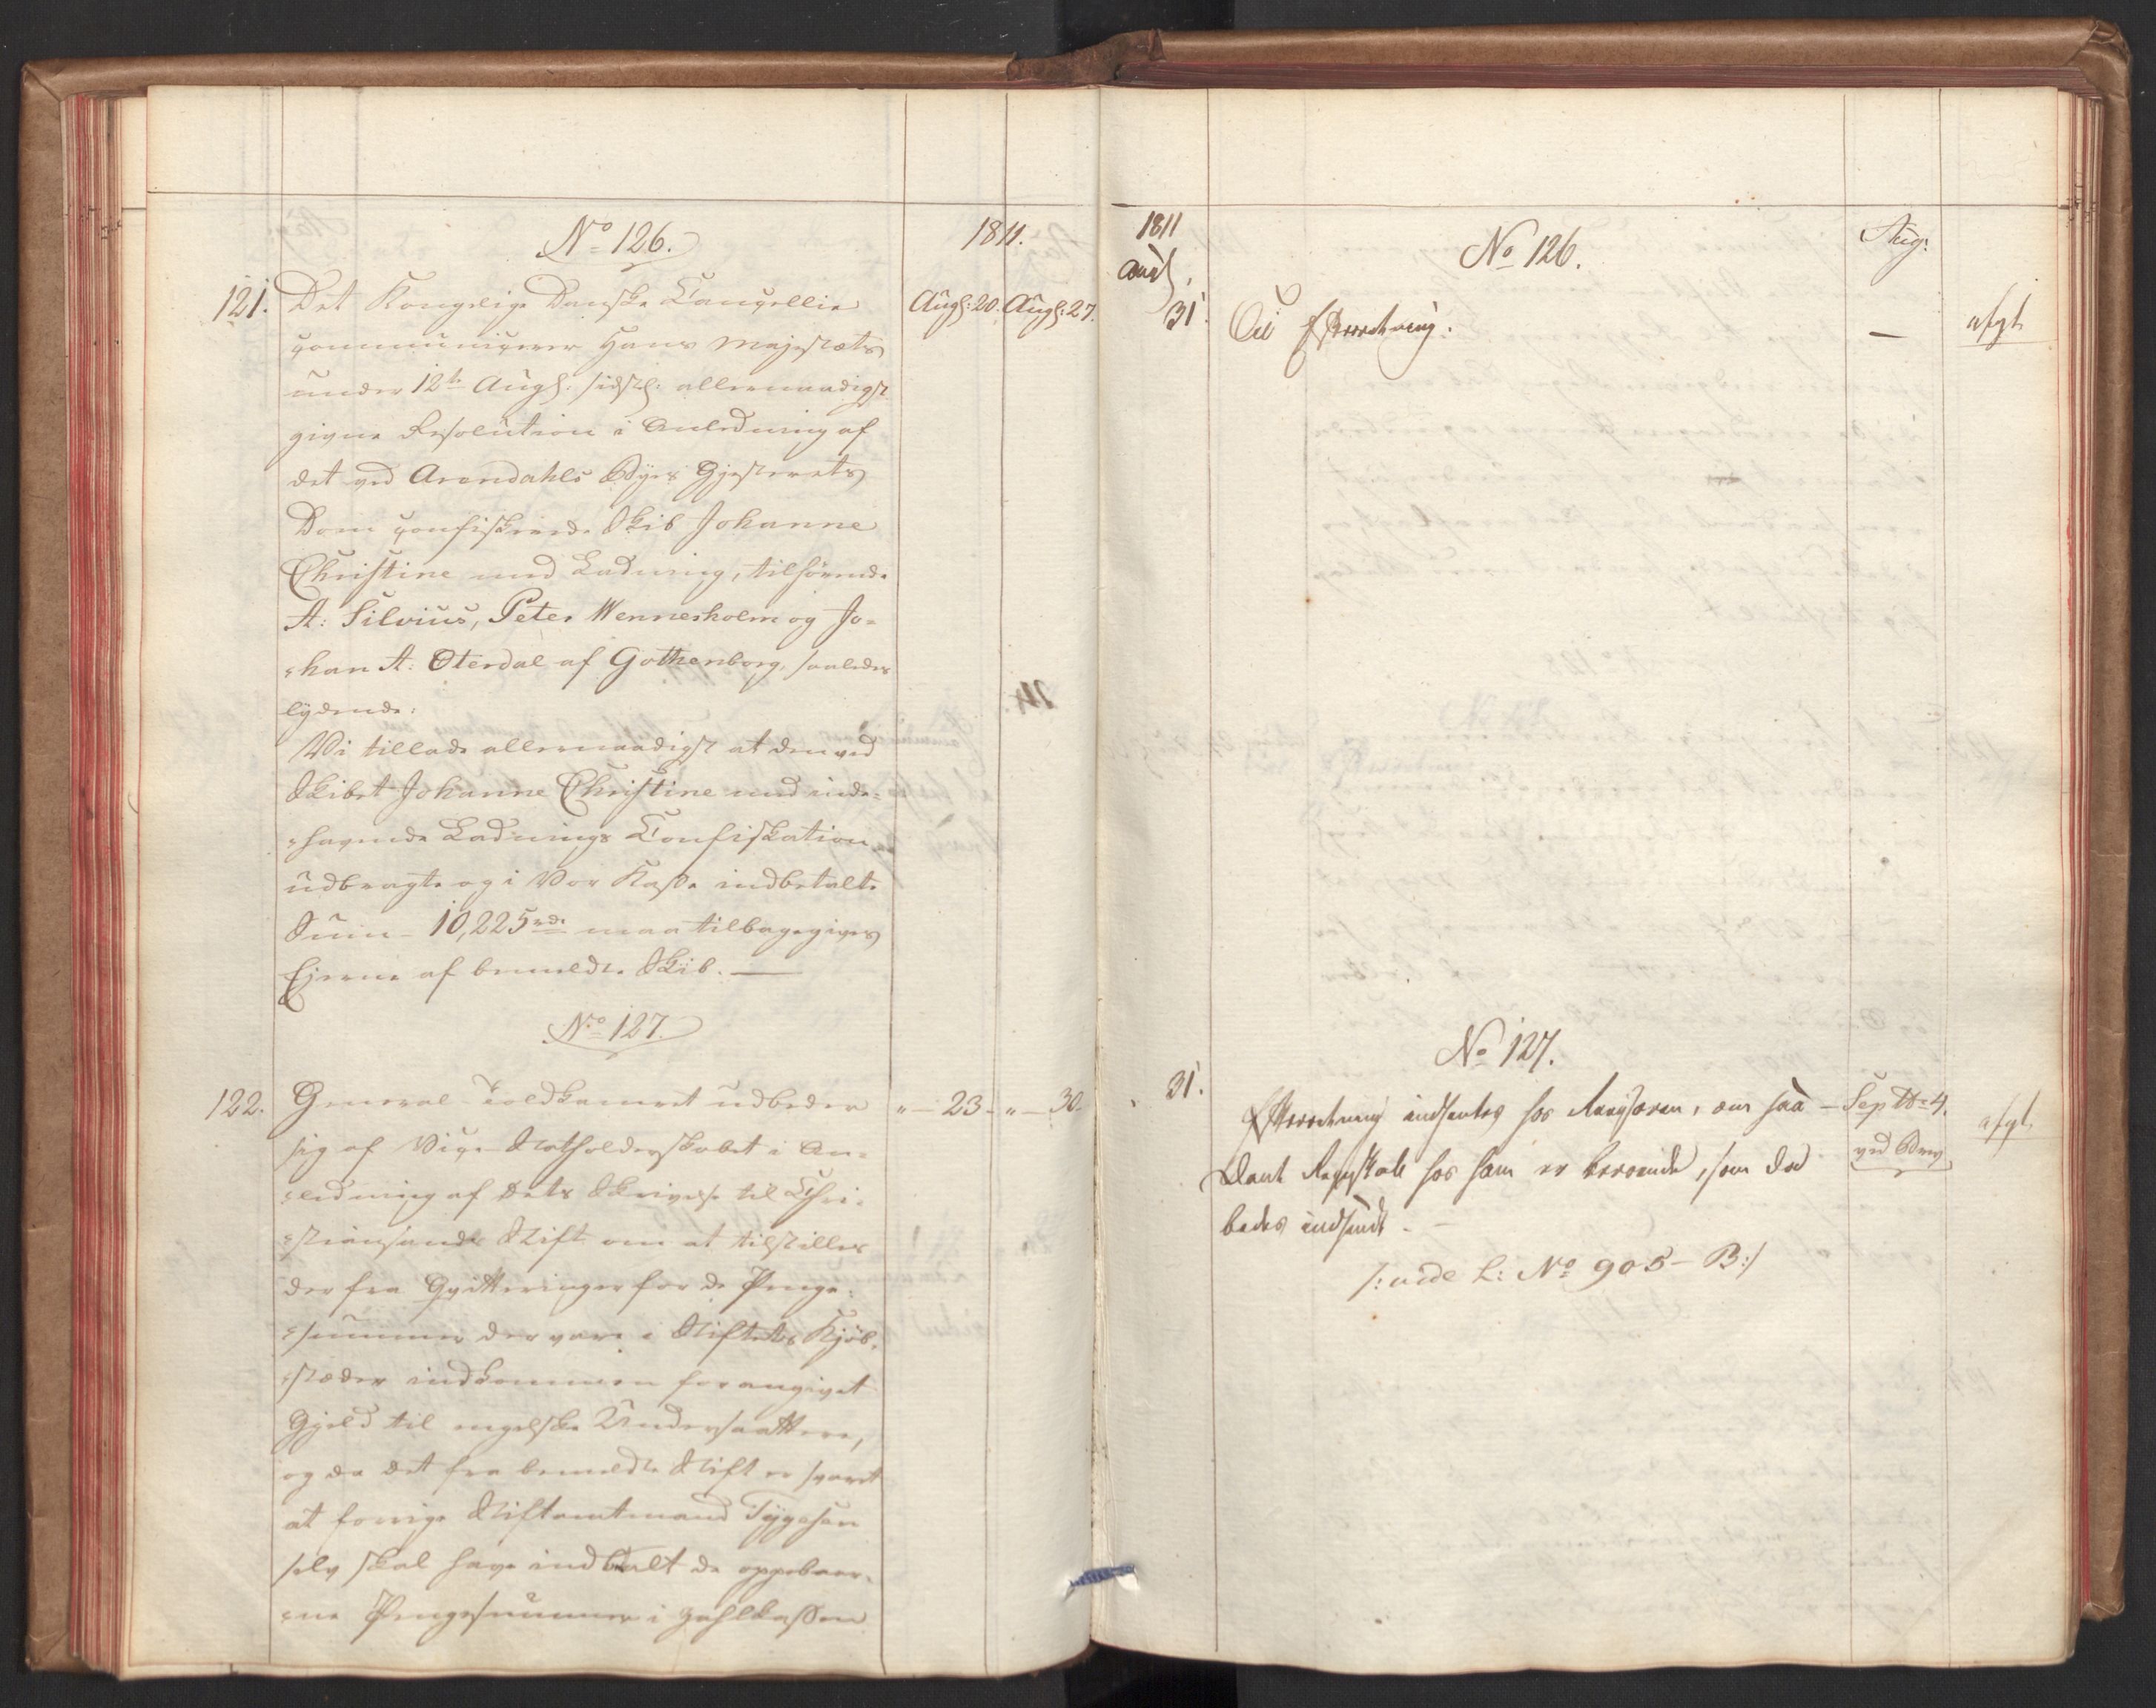 No 126.
1811.
121. Det Kongelige Danske Cancellie
Augs: 20. Augs: 27.
communicerer Hans Majestæts
under 12te Augs: sidstl: allernaadigst
givne Resolution i Anledning af
det ved Arendahls Byes Gjesterets
Dom confiskerede Skib Johanne
Christine med Ladning, tilhörende
A: Silvius, Peter Wennerholm og Jo=
=han A: Oterdal af Gothenborg, saaledes
lydende:
Vi tillade allernaadigst at den ved
Skibet Johanne Christine med inde=
=havende Ladnings Confiskation
udbragte og i Vor Kasse indbetalte
Sum - 10,225 rdr maa tilbagegives
Ejerne af bemeldte Skib. —
No 127.
122. General-Toldkamret udbeder
" — 23 - " — 30.
sig af Vice-Statholderskabet i An=
=ledning af dets Skrivelse til Chri=
=stiansands Stift om at tilstilles
der fra Qvitteringer for de Penge=
=summer der vare i Stiftets Kjöb=
=stæder indkommen for angivet
Gjeld til engelske Undersaattere,
og da det fra bemeldte Stift er svaret
at forrige Stiftamtmand Tygesen
selv skal have indbetalt de oppebaar=
=ne Pengesummer i Zahlkassen
1811
No 126.
Aug:
31. Til Efterretning.
—
afgt.
No 127.
31.
Efterretning indhentes hos , om saa
— Septbr 4.
afgt.
dant Regnskab hos ham er beroende, som da
ved Brev
bedes indsendt. —
/: vide L: No 905 - B:/